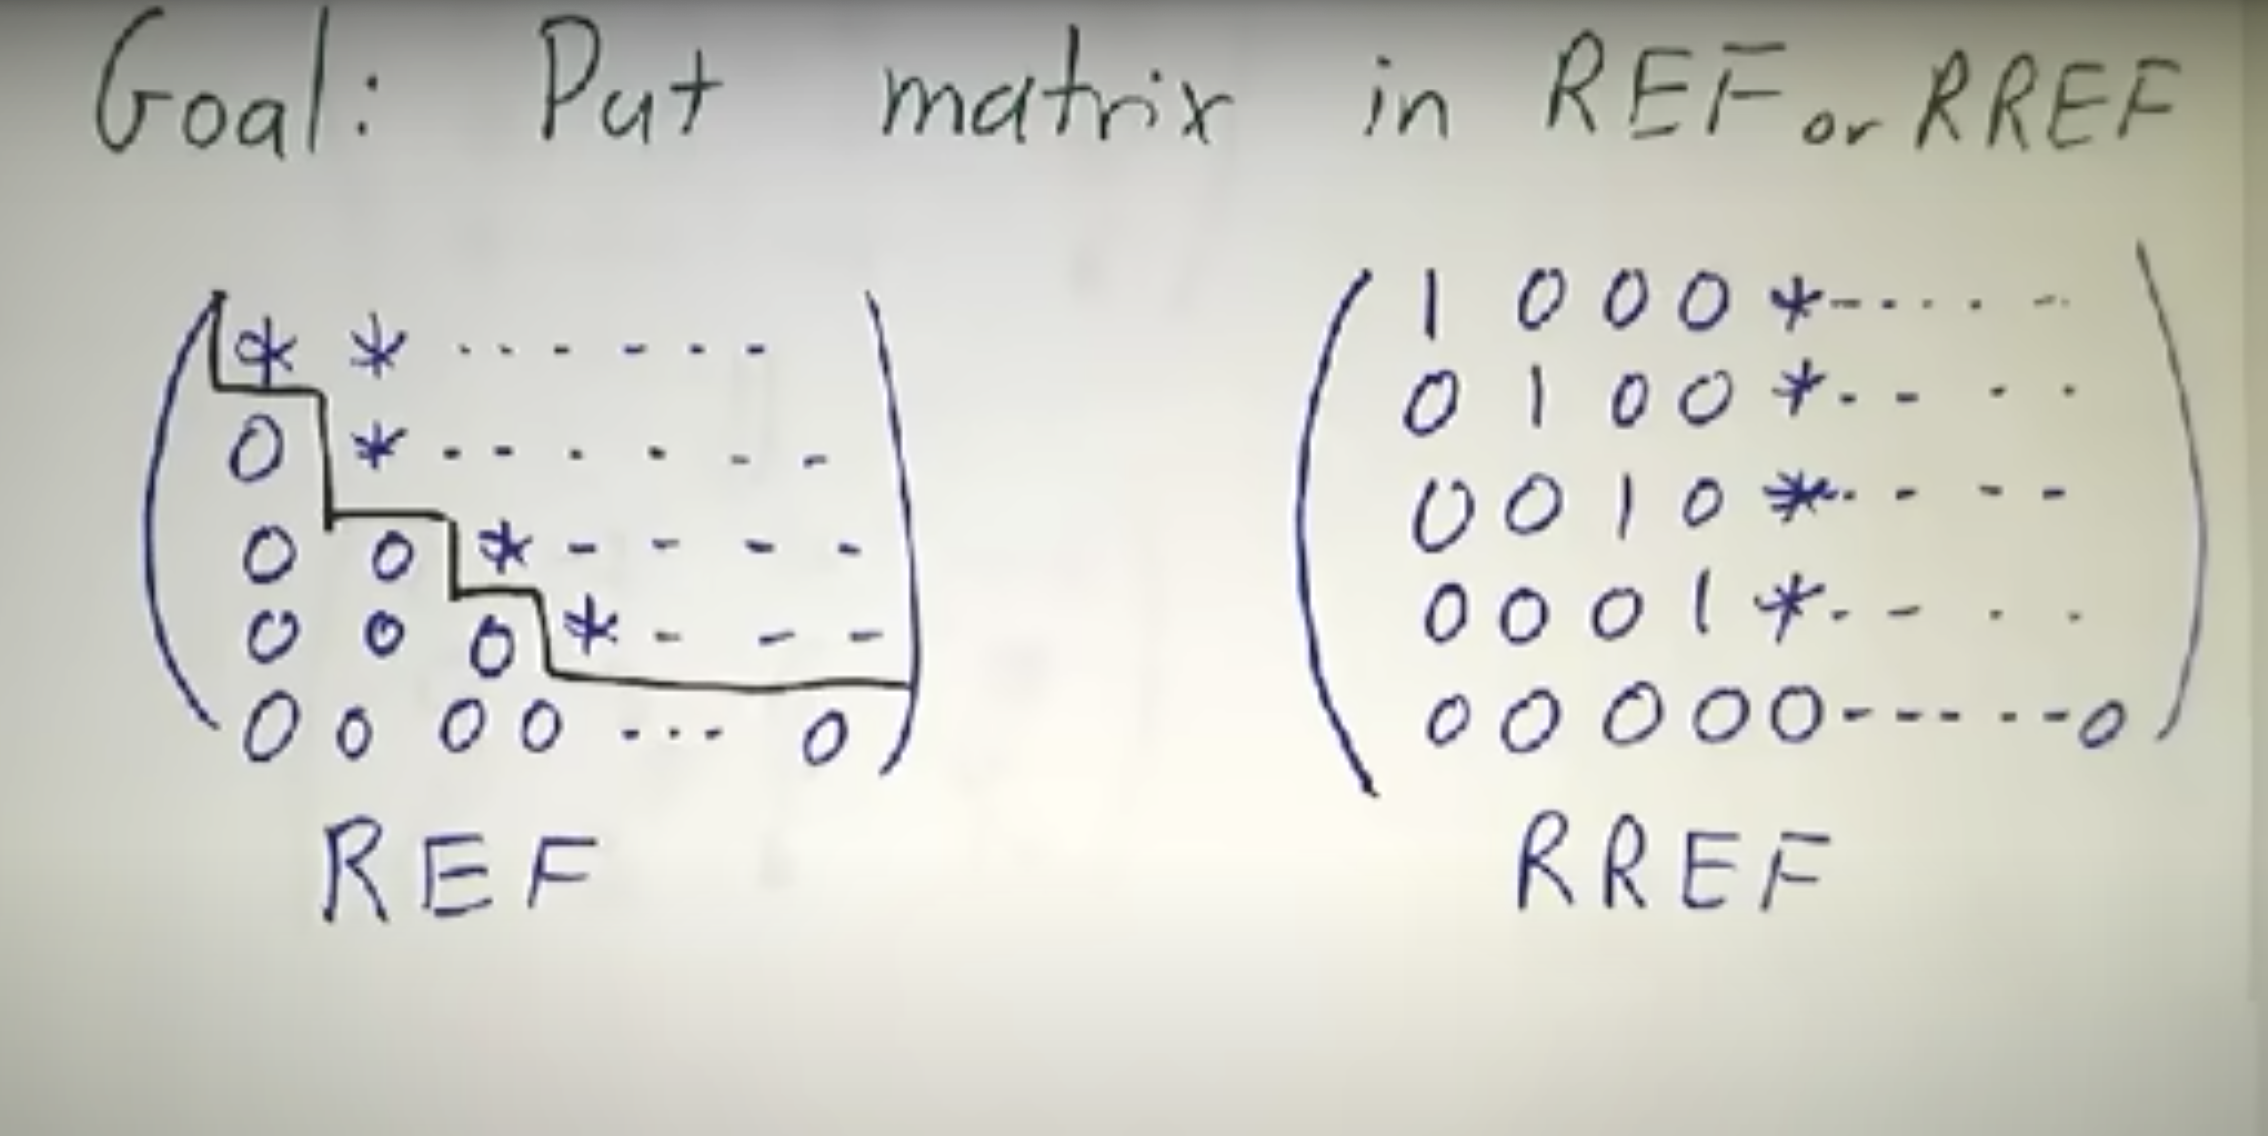 Goal: Put matrix in REF or RREF
* * . . . - - - -
0 * - - . . - -
0 0 * - - - -
0 0 0 * - - -
0 0 0 0 . . . 0
REF
1 0 0 0 * - - . . . -
0 1 0 0 * - - . .
0 0 1 0 * . - - -
0 0 0 1 * - - . .
0 0 0 0 0 - - - - - - 0
RREF